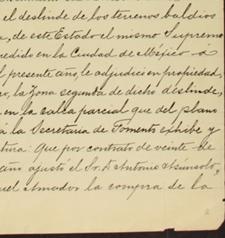 el deslinde de los terrenos baldios
, de este Estado el mismo Supremo
pedido en la Ciudad de Mexico á
l presente año, le adjudica en propiedad,
la Zona segunda de dicho deslinde,
en la calca parcial que del plano
á la Secretaria de Fomento exhibe y
tura: Que por contrato de veinte de
año ajustó el Sr. D. Antonio Asúnsolo,
uel Almador la compra de la